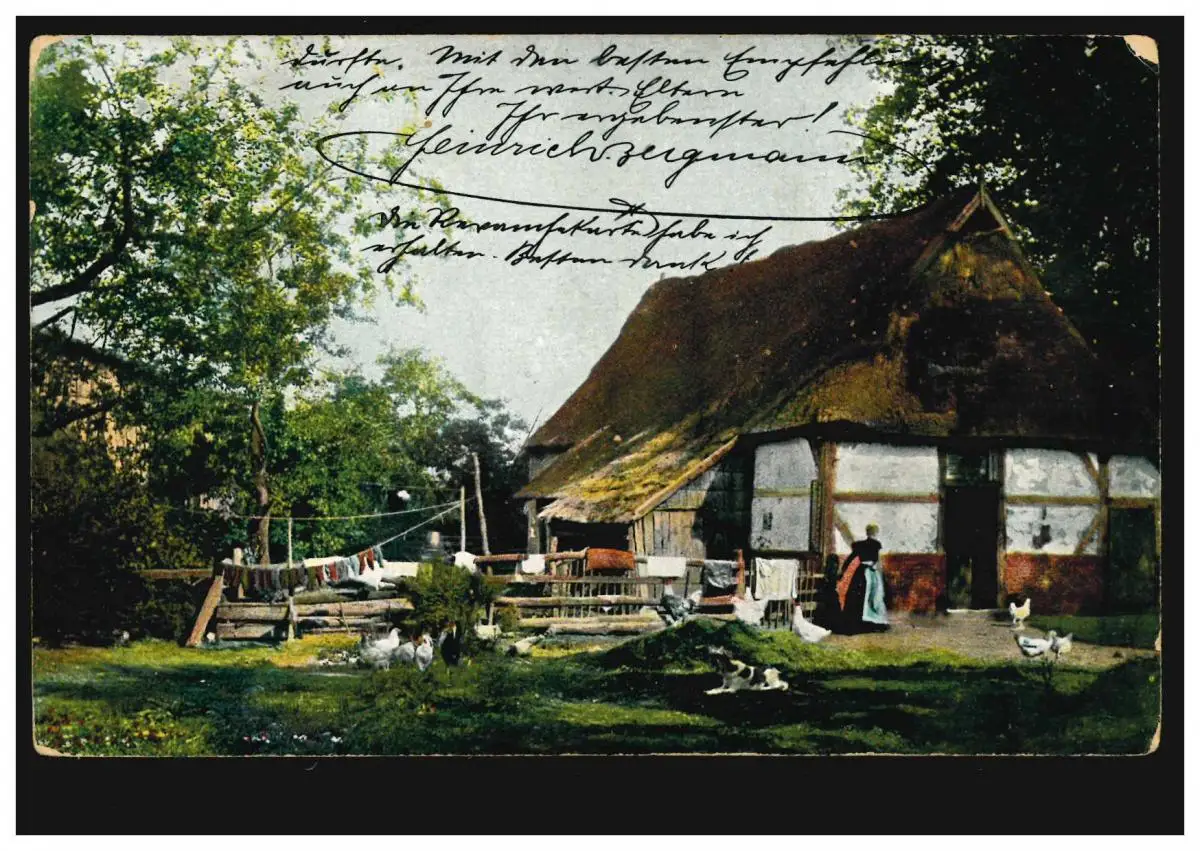 durfte. Mit den besten Empfehlungen
auch an Ihre werten Eltern
Ihr ergebenster!
Heinrich Bergmann
Die Revanchekarte habe ich
erhalten. Besten Dank!